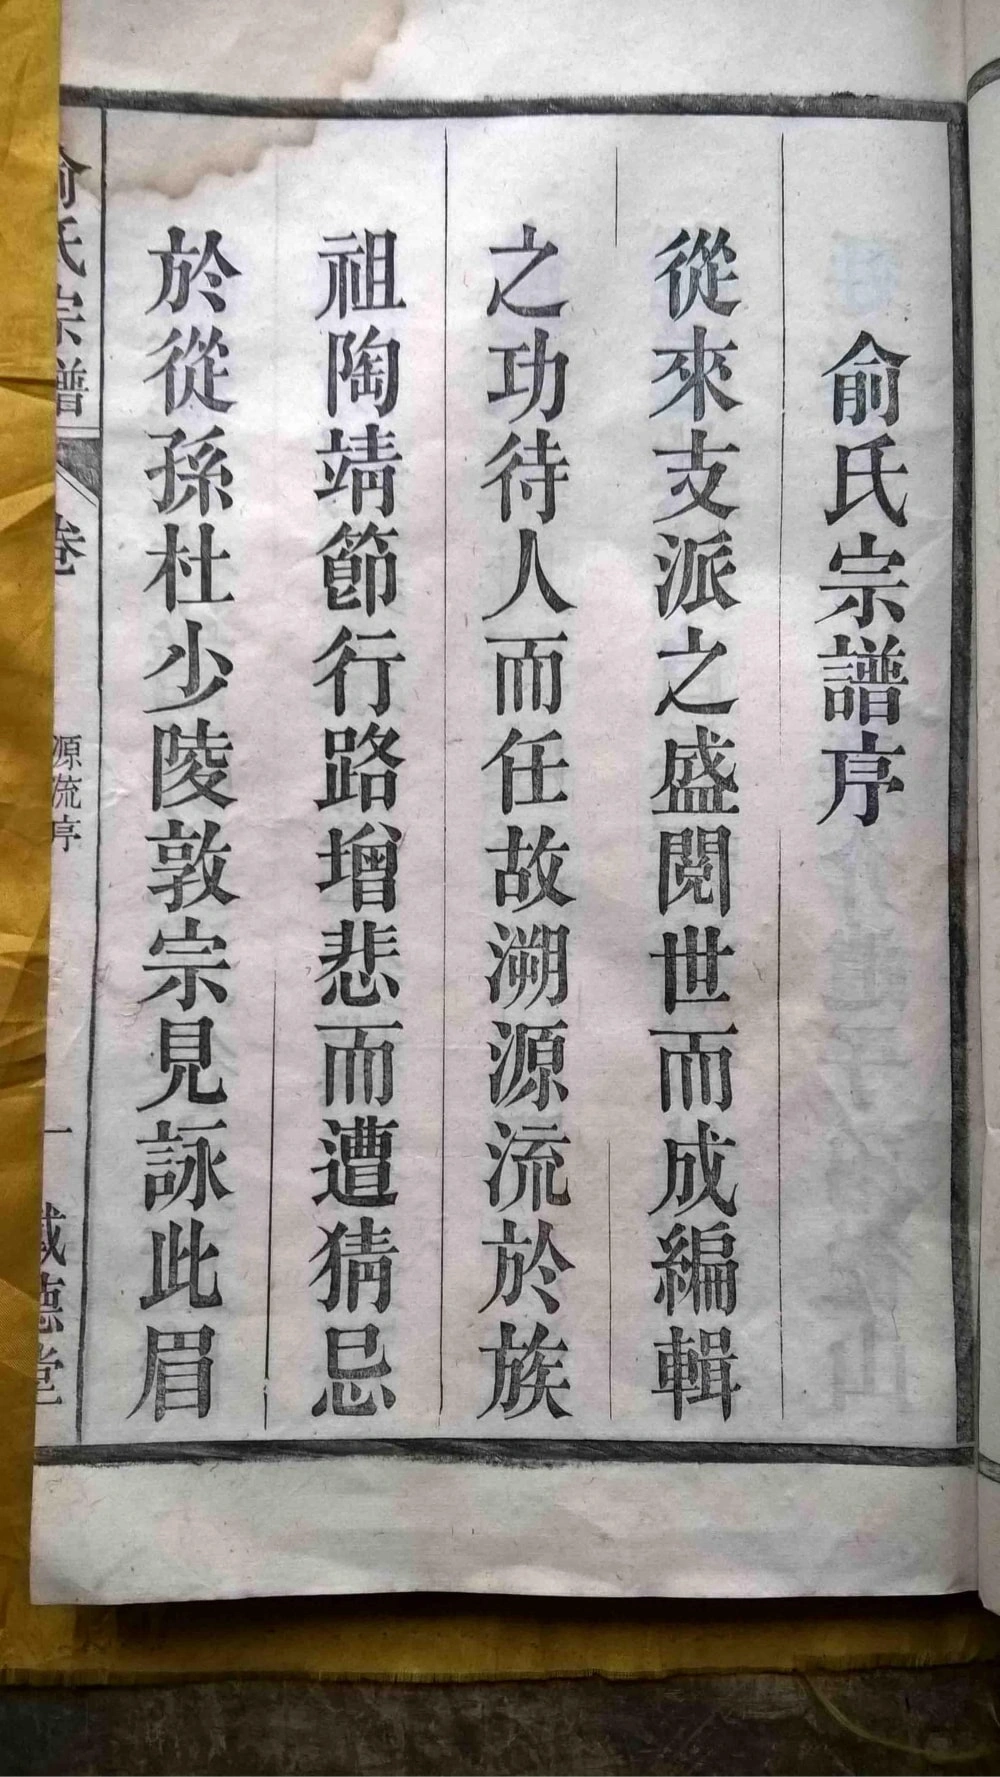 俞氏宗譜序
從來支派之盛閱世而成編輯
之功待人而任故溯源流於族
祖陶靖節行路增悲而遭猜忌
於從孫杜少陵敦宗見詠此眉
俞氏宗譜
卷
源流序
一
德堂